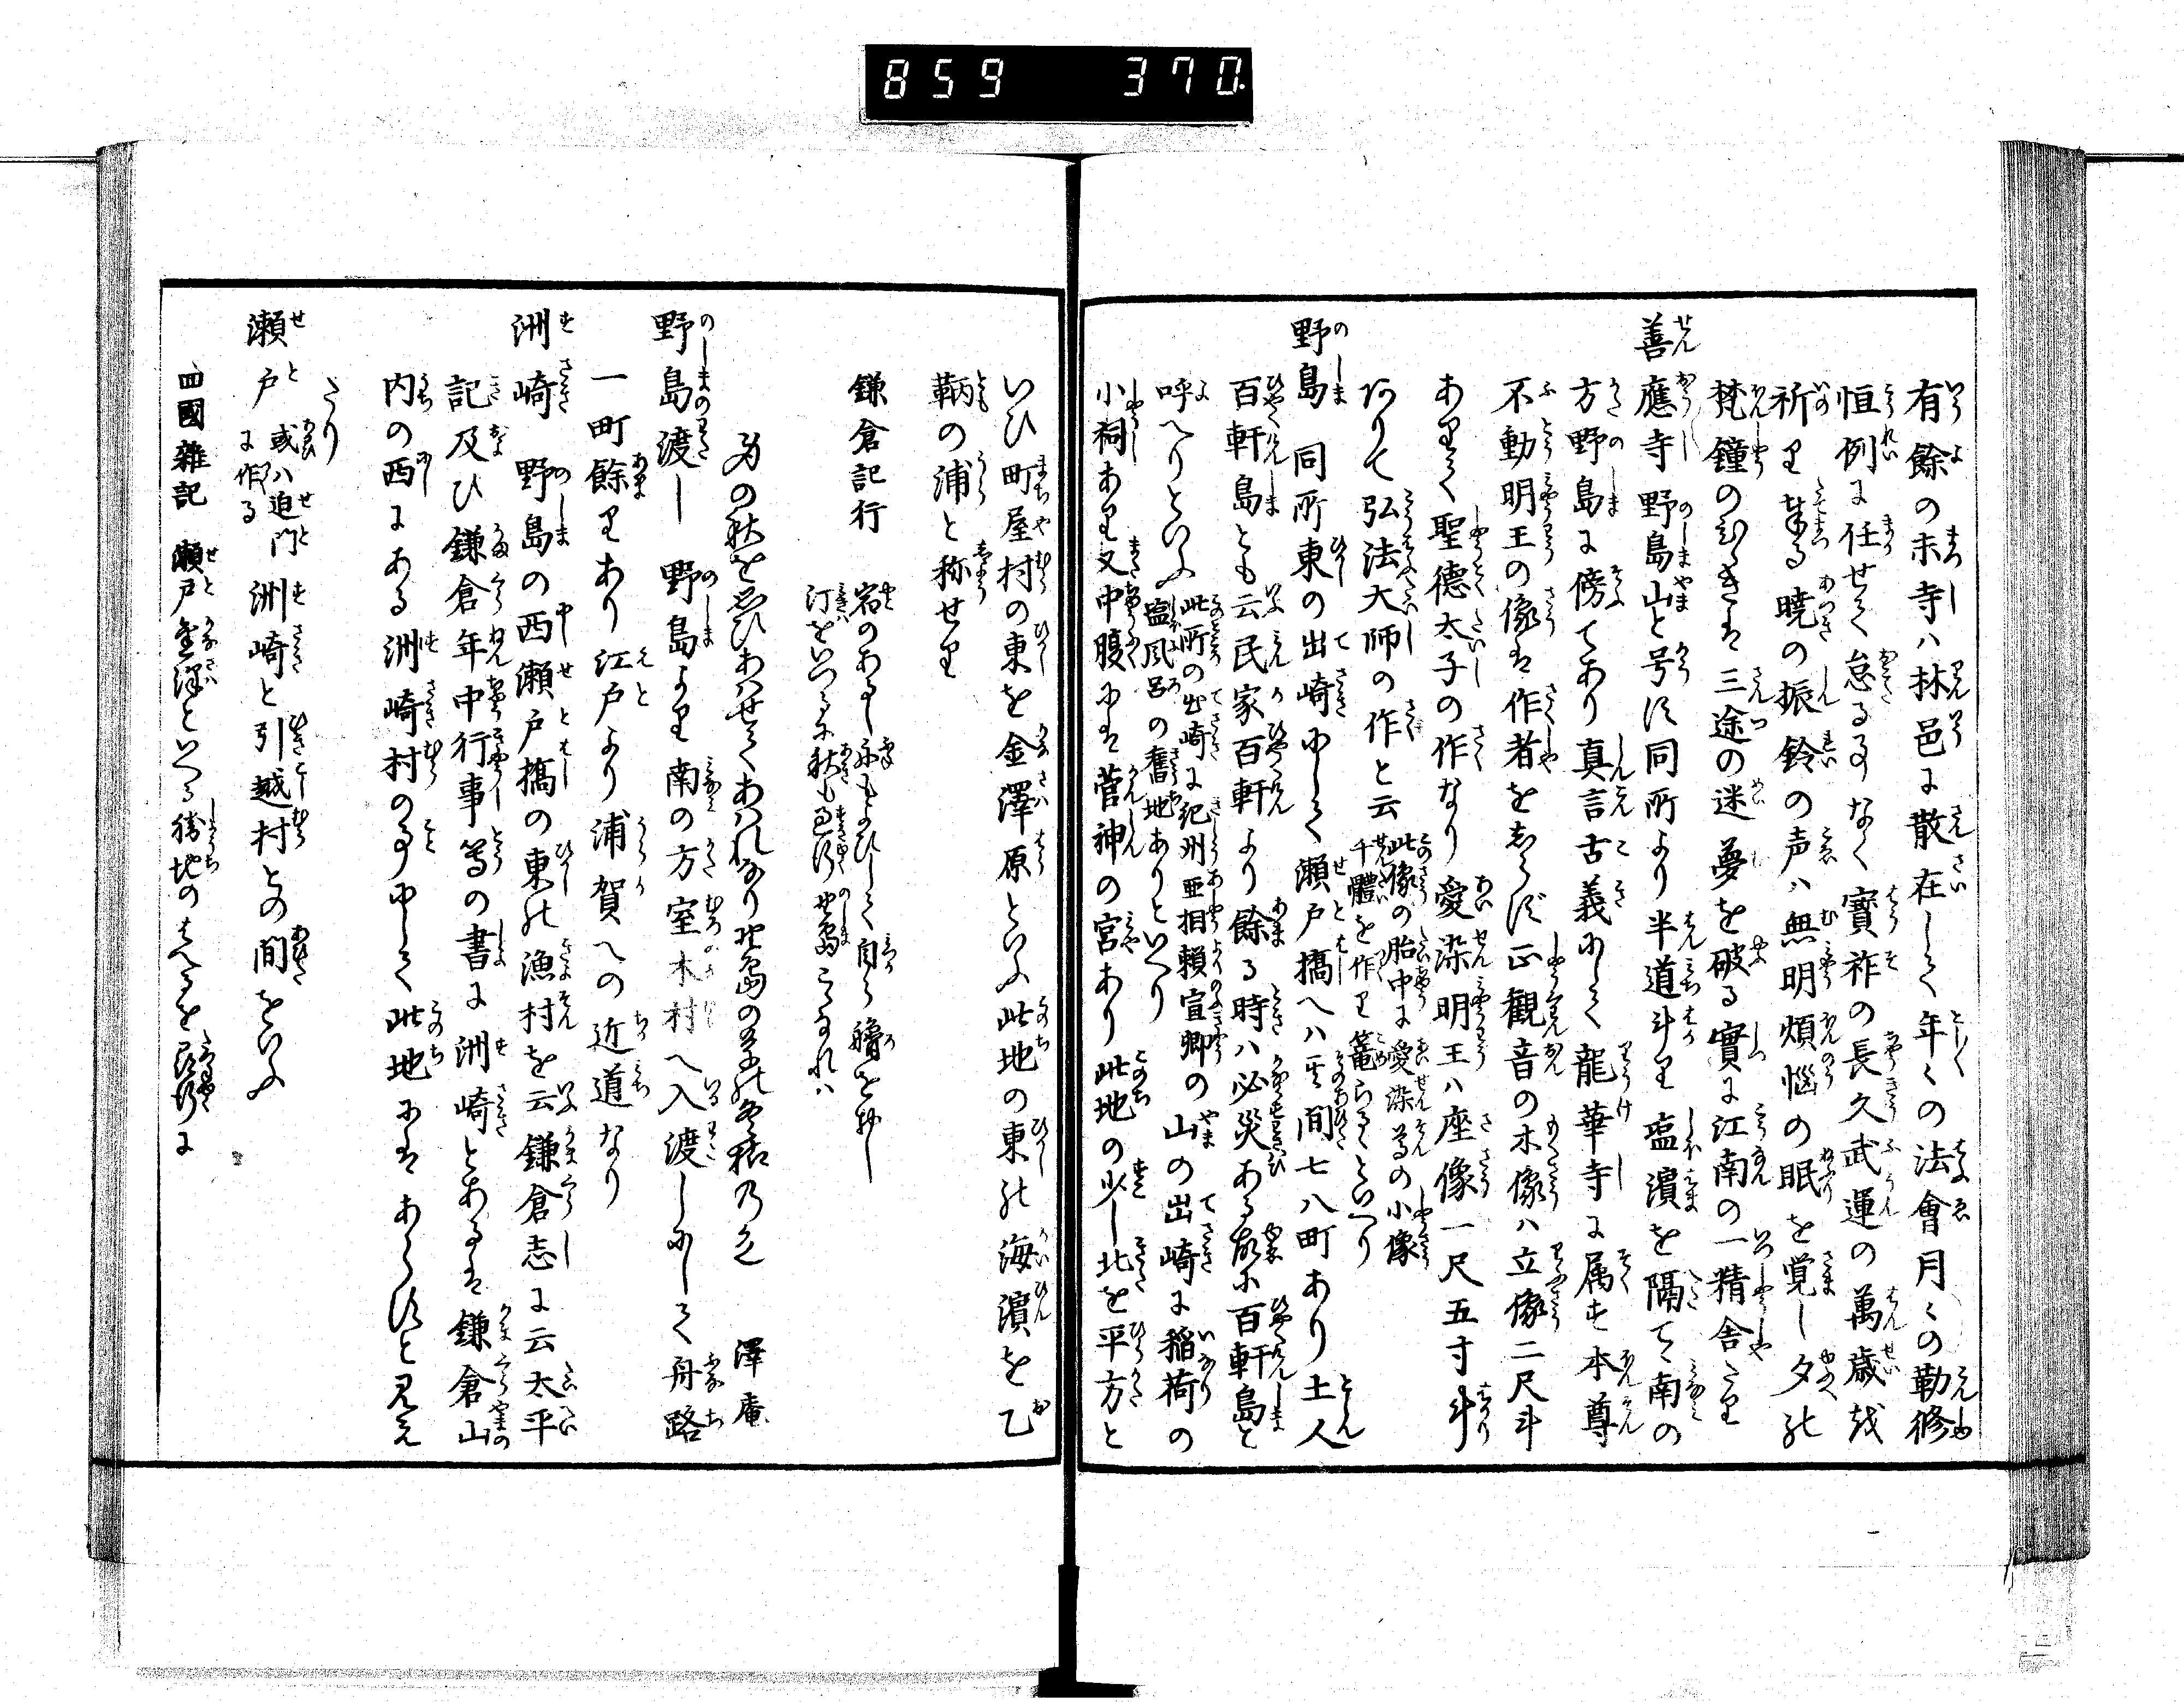 859 370
有餘の末寺ハ林邑に散在して年〱の法會月〱の勤修
恒例に任せて怠る事なく寳祚の長久武運の萬歳を
祈り奉る暁の振鈴の声ハ無明煩悩の眠を覚し夕の
梵鐘のひゞきは三途の迷夢を破る實に江南の一精舎たり
善應寺 野島山と号す同所より半道斗り塩濱を隔て南の
方野島に傍てあり真言古義にして龍華寺に属す本尊
不動明王の像は作者をしらず正観音の木像ハ立像二尺斗
ありて聖徳太子の作なり愛染明王ハ座像一尺五寸斗
ありて弘法大師の作と云 此像の胎中に愛染尊の小像
千體を作り篭らるといへり
野島 同所東の出崎にして瀬戸橋へハ其間七八町あり土人
百軒島とも云民家百軒より餘る時ハ必災ある故に百軒島と
呼へりといふ 此所の出崎に紀州亜相頼宣卿の
塩風呂の舊地ありといへり 山の出崎に稲荷の
小祠あり又中腹には菅神の宮あり此地の少し北を平方と
いひ町屋村の東を金澤原といふ此地の東の海濱を乙
鞆の浦と称せり
鎌倉記行 宿のあるし舟もよひして自ら艪を押し
汀をいつるに秋も過行野島こゝなれハ
身の秋を思ひあハせてあハれなり野島の草の冬枯乃色 澤庵
野島渡し 野島より南の方室木村へ入渡しにして舟路
一町餘りあり江戸より浦賀への近道なり
洲崎 野島の西瀬戸橋の東の漁村を云鎌倉志に云太平
記及ひ鎌倉年中行事等の書に洲崎とあるは鎌倉山
内の西にある洲崎村の事にして此地にはあらすと見え
たり
瀬戸 或ハ迫門
に作る 洲崎と引越村との間をいふ
四國雜記 瀬戸金澤といへる勝地のはへるを尋行に